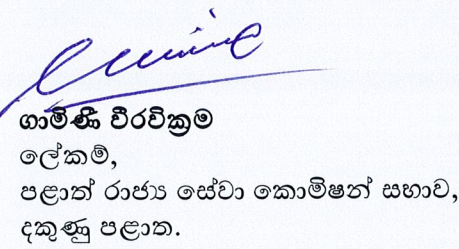 ගාමිණී වීරවික්‍රම
ලේකම්,
පළාත් රාජ්‍ය සේවා කොමිෂන් සභාව,
දකුණු පළාත.